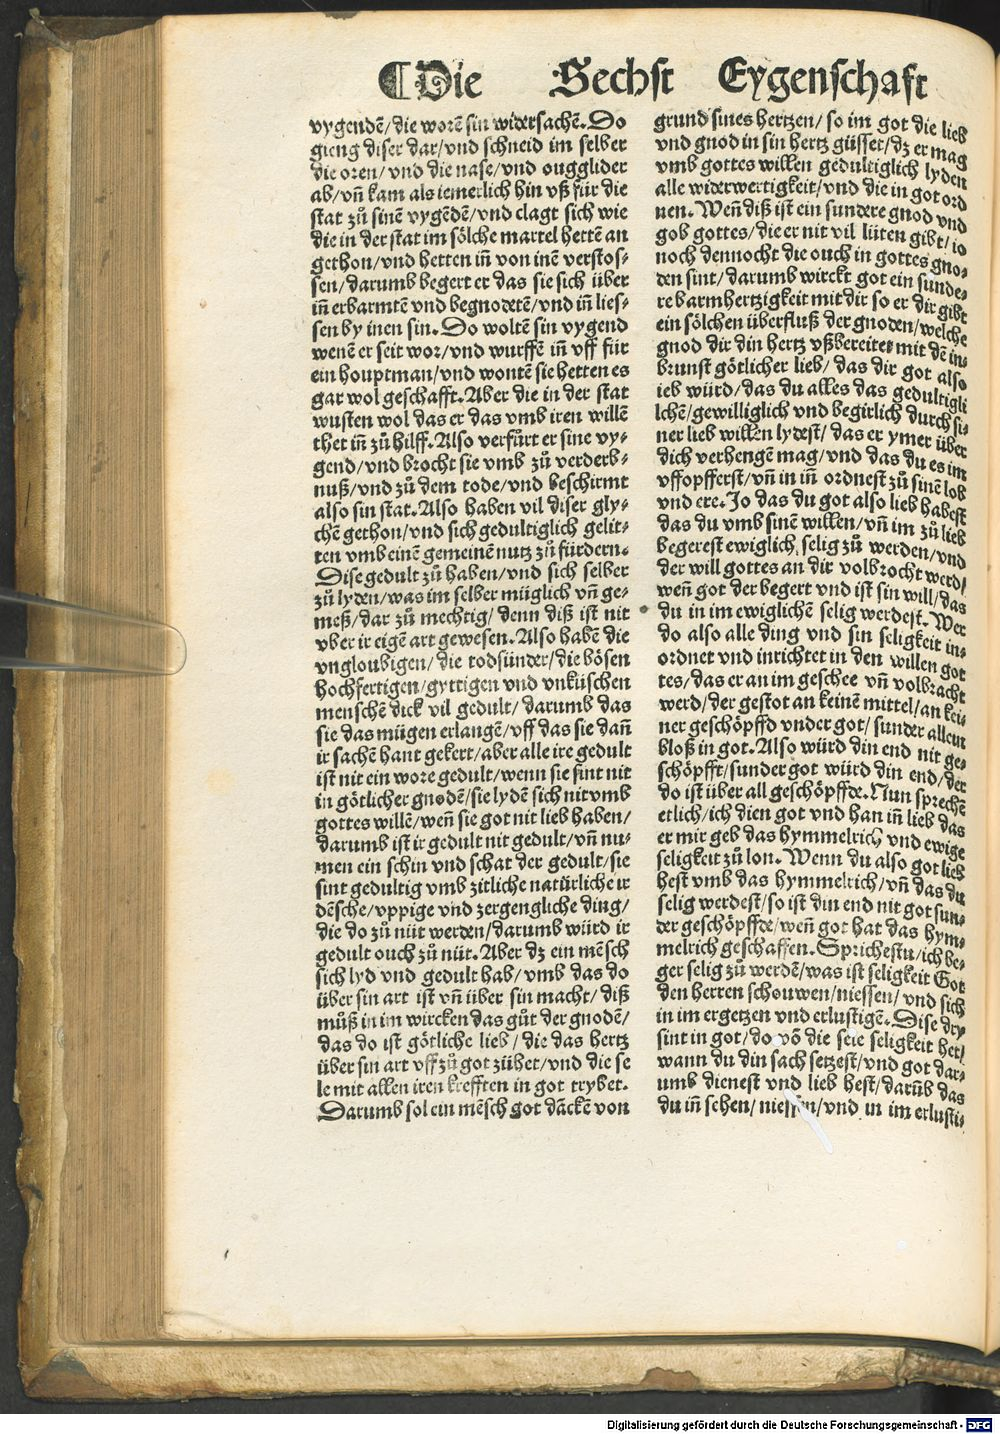 ¶ Die Sechst Eygenschaft
vygendē/die worē sin widersachē. Do
gieng diser dar/vnd schneid im selber
die oren/vnd die nase/vnd ougglider
ab/vn̄ kam als iemerlich hin vß für die
stat zů sinē vygēdē/vnd clagt sich wie
die in der stat im sölche martel hettē an
gethon/vnd hetten in̄ von inē verstos⸗
sen/darumb begert er das sie sich über
in̄ erbarmtē vnd begnodetē/vnd in̄ lies⸗
sen by inen sin. Do woltē sin vygend
wenē er seit wor/vnd wurffē in̄ vff für
ein houptman/vnd wontē sie hetten es
gar wol geschafft. Aber die in der stat
wusten wol das er das vmb iren willē
thet in̄ zů hilff. Also verfůrt er sine vy⸗
gend/vnd brocht sie vmb zů verderb⸗
nuß/vnd zů dem tode/vnd beschirmt
also sin stat. Also haben vil diser gly⸗
chē gethon/vnd sich gedultiglich gelit⸗
ten vmb einē gemeinē nutz zů fürdern.
Dise gedult zů haben/vnd sich selber
zů lyden/was im selber müglich vn̄ ge⸗
meß/dar zů mechtig/ denn diß ist nit
vber ir eigē art gewesen. Also habē die
vngloubigen/ die todsünder/die bösen
hochfertigen/gyttigen vnd vnküschen
menschē dick vil gedult/ darumb das
sie das mügen erlangē/vff das sie dan̄
ir sachē hant gekert/aber alle ire gedult
ist nit ein wore gedult/wenn sie sint nit
in götlicher gnodē/sie lydē sich nit vmb
gottes willē/wen̄ sie got nit lieb haben/
darumb ist ir gedult nit gedult/vn̄ nu⸗
men ein schin vnd schat der gedult/sie
sint gedultig vmb zitliche natürliche ir
dēsche/vppige vnd zergengliche ding/
die do zů nüt werden/darumb würd ir
gedult ouch zů nüt. Aber dz ein mēsch
sich lyd vnd gedult hab/vmb das do
über sin art ist vn̄ über sin macht/ diß
můß in im wircken das gůt der gnodē/
das do ist götliche lieb/ die das hertz
über sin art vff zů got zühet/vnd die se
le mit allen iren krefften in got trybet.
Darumb sol ein mēsch got dāckē von
grund sines hertzen/ so im got die lieb
vnd gnod in sin hertz güsset/dz er mag
vmb gottes willen gedultiglich lyden
alle widerwertigkeit/vnd die in got ord
nen. Wen̄ diß ist ein sundere gnod vnd
gob gottes/die er nit vil lüten gibt/ io
noch dennocht die ouch in gottes gno⸗
den sint/darumb wirckt got ein sunde⸗
re barmhertzigkeit mit dir so er dir gibt
ein sölchen überfluß der gnoden/welche
gnod dir din hertz vßbereitet mit dē in⸗
brunst götlicher lieb/ das dir got also
ieb würd/das du alles das gedultigli
lchē/gewilliglich vnd begirlich durch si⸗
ner lieb willen lydest/ das er ymer über
dich verhengē mag/vnd das du es im
vffopfferst/vn̄ in in̄ ordnest zů sinē lob
vnd ere. Jo das du got also lieb habest
das du vmb sinē willen/vn̄ im zů lieb
begerest ewiglich selig zů werden/vnd
der will gottes an dir volbrocht werd/
wen̄ got der begert vnd ist sin will/das
du in im ewiglichē selig werdest. Wer
do also alle ding vnd sin seligkeit in⸗
ordnet vnd inrichtet in den willen got
tes/das er an im geschee vn̄ volbracht
werd/der gestot an keinē mittel/an kei⸗
ner geschöpffd vnder got/ sunder allein
bloß in got. Also würd din end nit ge⸗
schöpfft/sunder got würd din end/der
do ist über all geschöpffde. Nun sprechē
etlich/ich dien got vnd han in̄ lieb das
er mir geb das hymmelrich vnd ewige
seligkeit zů lon. Wenn du also got lieb
hest vmb das hymmelrich/vn̄ das du
selig werdest/so ist din end nit got sun⸗
der geschöpffde/wen̄ got hat das hym⸗
melrich geschaffen. Sprichestu/ich be⸗
ger selig zů werdē/was ist seligkeit Got
den herren schouwen/niessen/ vnd sich
in im ergetzen vnd erlustigē. Dise dry
sint in got/do vō die sele seligkeit het/
wann du din sach setzest/vnd got dar⸗
umb dienest vnd lieb hest/darūb das
du in̄ sehen/ niessen/vnd in im erlusti⸗
Digitalisierung gefördert durch die Deutsche Forschungsgemeinschaft - DFG